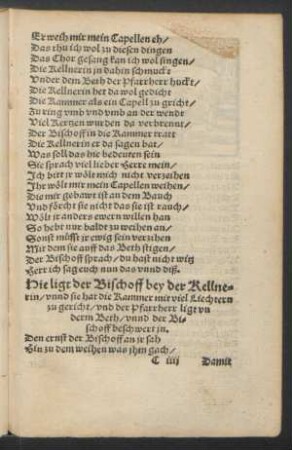 Er weih mir mein Capellen eh/
Das thu ich wol zu diesen dingen
Das Chor gesang kan ich wol singen/
Die Kellnerin jn dahin schmuckt
Under dem Bath der Pfarrherr huckt/
Die Kellnerin het da wol gedicht
Die Kammer als ein Capell zu gricht/
Zu ring vmb vnd vmb an der wendt
Viel Kertzen wurden da verbrennt/
Der Bischoff in die Kammer tratt
Die Kellnerin er da sagen bat/
Was soll das hie bedeuten sein
Sie sprach viel lieber Herre mein/
Ich bitt jr wölt mich nicht verzeihen
Ihr wölt mir mein Capellen weihen/
Die mir gebawt ist an dem Bauch
Vnd förcht sie nicht das sie ist rauch/
Wölt jr anders ewern willen han
So hebt nur baldt zu weihen an/
Sonst müsst jr ewig sein verzihen
Mit dem sie auff das Beth stigen/
Der Bischoff sprach/ du hast nicht witz
Herr ich sag euch nun das vnnd diß.
Hie ligt der Bischoff bey der Kellne-
rin/ vnnd sie hat die Kammer mit viel Liechtern
zu gericht/ vnd der Pfarrherr ligt vn
derm Beth/ vnnd der Bi-
schoff beschwert jn.
Den ernst der Bischoff an jr sah
Hin zu dem weihen was jhm gach/
C iiij Damit